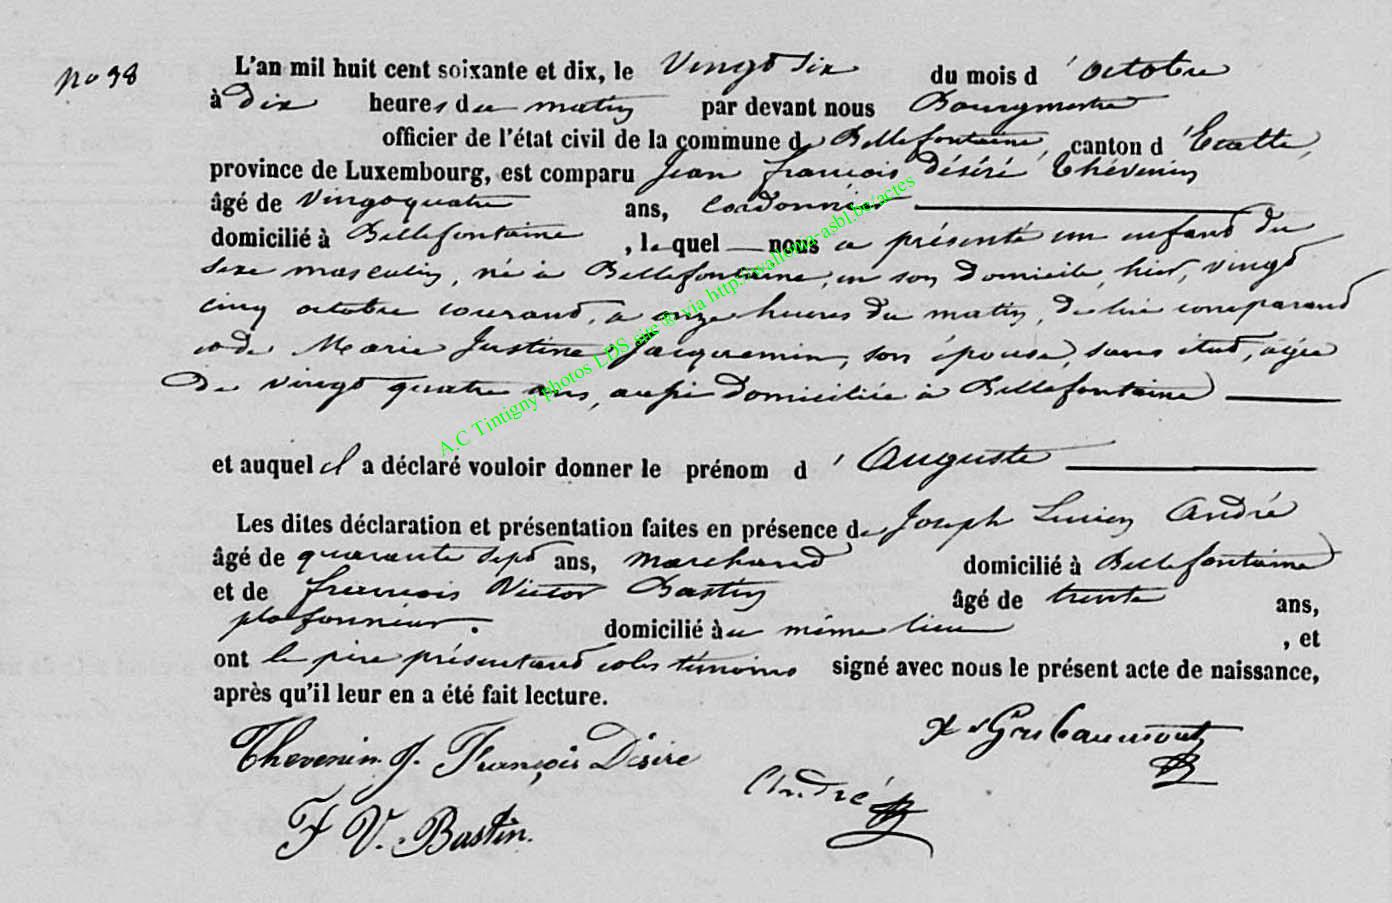 No 38
L'an mil huit cent soixante et dix, le vingt six du mois d'octobre
à dix heures du matin par devant nous Bourgmestre
officier de l'état civil de la commune de Bellefontaine, canton d'Etalle,
province de Luxembourg, est comparu Jean françois désiré Thévenin
âgé de vingt quatre ans, cordonnier
domicilié à Bellefontaine, lequel nous a présenté un enfant du
sexe masculin, né à Bellefontaine, en son domicile, hier, vingt
cinq octobre courant, à onze heures du matin, de lui comparant
et de Marie Justine Jacquemin, son épouse, sans état, agée
de vingt quatre ans, aussi domiciliée à Bellefontaine
et auquel il a déclaré vouloir donner le prénom d'Auguste
Les dites déclaration et présentation faites en présence de Joseph Lucien André
âgé de quarante sept ans, marchand domicilié à Bellefontaine
et de françois Victor Bastin âgé de trente ans,
plafonneur. domicilié au même lieu, et
ont le père présentant et les témoins signé avec nous le présent acte de naissance,
après qu'il leur en a été fait lecture.
Thevenin J. François Désiré
André
F V. Bastin.
A.C Tintigny photos LDS site ® via http://wallonia-asbl.be/actes